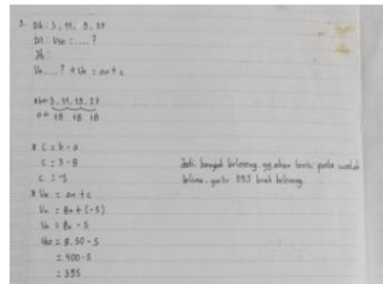 3. Dik : 3, 11, 19, 27
Dit : U50 = .... ?
Jb :
Un .... ? → Un = an + c
* b = 3, 11, 19, 27
a = +8 +8 +8
* c = b - a
c = 3 - 8
c = -5
* Un = an + c
Un = 8n + (-5)
Un = 8n - 5
U50 = 8.50 - 5
= 400 - 5
= 395
Jadi banyak kelereng yg akan berisi pada wadah
kelima, yaitu 395 buah kelereng.